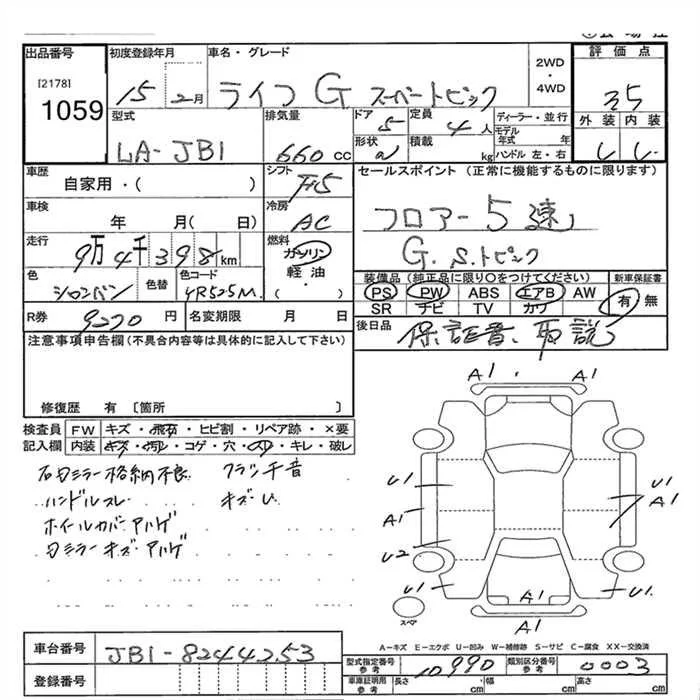 出品番号 初度登録年月 車名・グレード 2WD・4WD 評価点
[2178]
1059 15 2月 ライフ G スーパートピック 35
型式 排気量 ドア 定員 ディーラー・並行 外装 内装
LA-JB1 660cc 5 4人 モデル年式 年
形状 積載 kg ハンドル 左・右
車歴 シフト セールスポイント (正常に機能するものに限ります)
自家用・( ) F5
車検 冷房 フロアー5速
年 月( 日) AC G.S.トピック
走行 燃料
9万4千398km ガソリン・軽油・( )
色 色替 色コード 装備品(純正品に限り○をつけてください) 新車保証書
シャンパン YR525M PS PW ABS エアB AW 有・無
SR ナビ TV カワ
R券 9270円 名変期限 月 日 後日品 保証書、取説
注意事項申告欄(不具合内容等は具体的に記入して下さい)
修復歴 有 〔箇所 〕
検査員記入欄 FW キズ・飛石・ヒビ割・リペア跡・×要
内装 キズ・ヨゴレ・コゲ・穴・スレ・キレ・破レ
右ミラー格納不良 クラッチ音
ハンドルスレ キズU
ホイールカバーアハゲ
ミラーキズ・アハゲ
A1 A1
U1 U1
A1 A1
U2
U1 A1 U1
スペア A1
A-キズ E-エクボ U-凹み W-補修跡 S-サビ C-腐食 XX-交換済
車台番号 JB1-8244253 型式指定番号 参考 10990 類別区分番号 参考 0003
登録番号 車庫証明用 参考 長さ cm 幅 cm 高さ cm